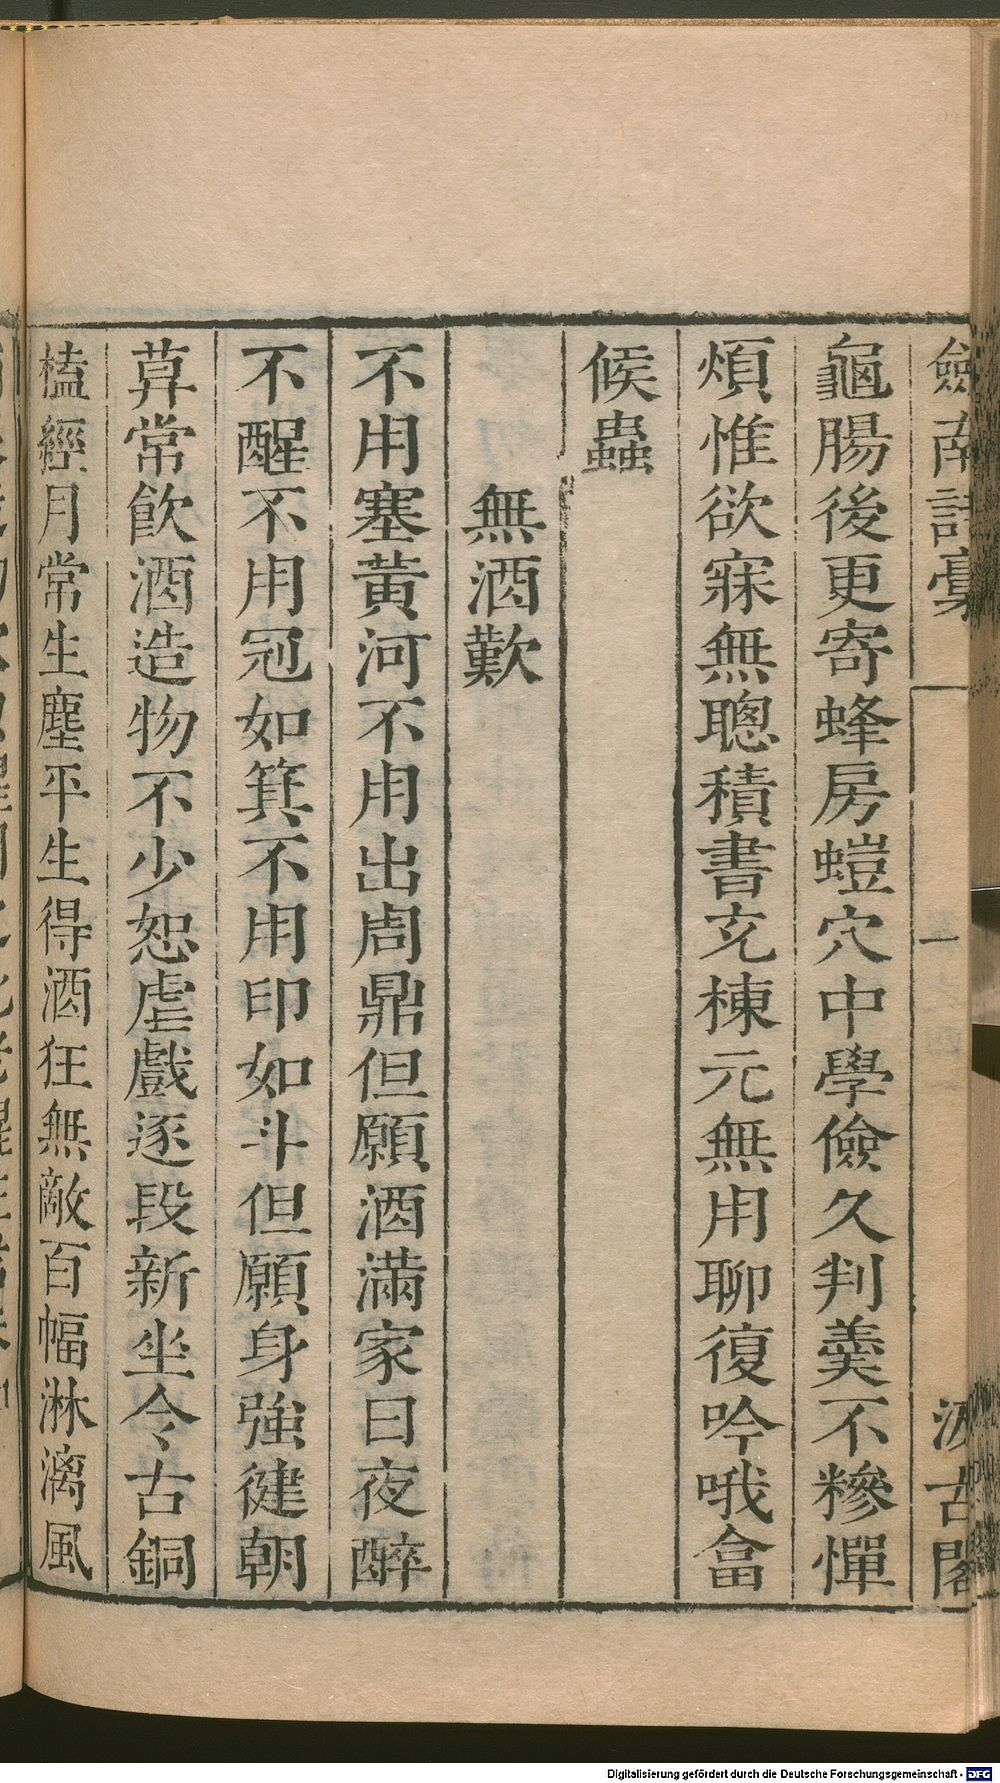 劒南詩稾
一
汲古閣
龜腸後更寄蜂房螘穴中學儉久判羹不糝憚
煩惟欲寐無聰積書充棟元無用聊復吟哦畣
候蟲
無酒歎
不用塞黃河不用出周鼎但願酒滿家日夜醉
不醒不用冠如箕不用印如斗但願身強健朝
莫常飲酒造物不少恕虐戲逐段新坐令古銅
榼經月常生塵平生得酒狂無敵百幅淋漓風
Digitalisierung gefördert durch die Deutsche Forschungsgemeinschaft - DFG